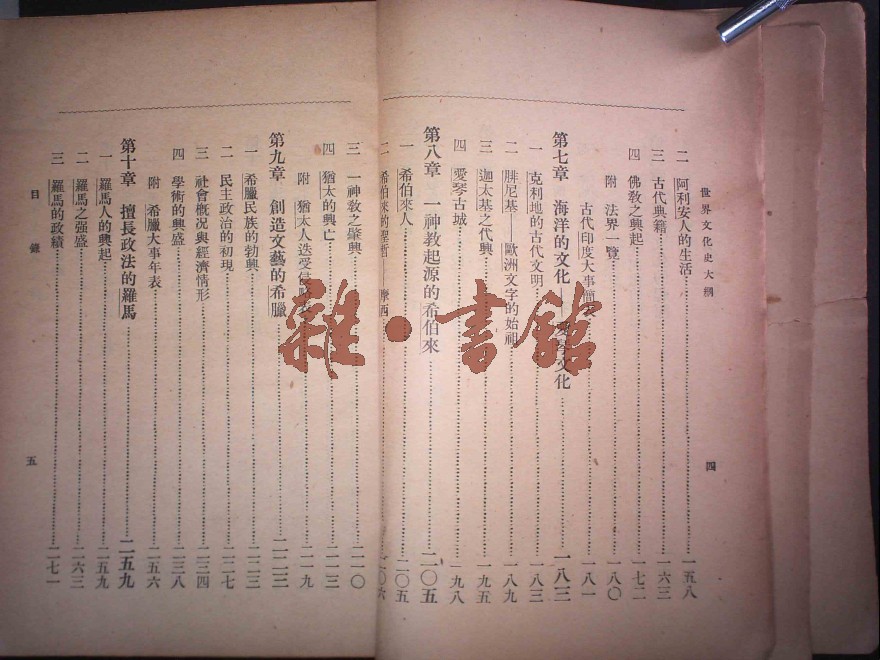 世界文化史大綱
二 阿利安人的生活 一五八
三 古代典籍 一六三
四 佛敎之興起 一七二
附 法界一覽 一八〇
古代印度大事簡 一八一
第七章 海洋的文化——愛琴文化 一八三
一 克利地的古代文明 一八三
二 腓尼基——歐洲文字的始祖 一八九
三 迦太基之代興 一九五
四 愛琴古城 一九八
四
第八章 一神敎起源的希伯來 二〇五
一 希伯來人 二〇五
二 希伯來的聖哲——摩西 二〇六
三 一神敎之肇興 二一〇
四 猶太的興亡 二一三
附 猶太人迭受侵 二一九
第九章 創造文藝的希臘 二二三
一 希臘民族的勃興 二二三
二 民主政治的初現 二二七
三 社會概况與經濟情形 二三四
四 學術的興盛 二三八
附 希臘大事年表 二五六
第十章 擅長政法的羅馬 二五九
一 羅馬人的興起 二五九
二 羅馬之强盛 二六三
三 羅馬的政績 二七一
目錄
五
雜·書館